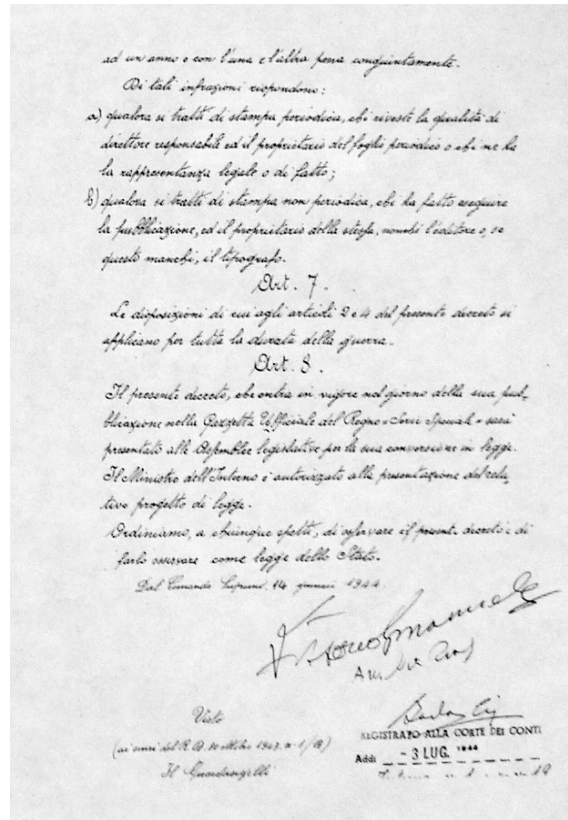 ad un anno o con l'una e l'altra pena congiuntamente.
Di tali infrazioni rispondono:
a) qualora si tratti di stampa periodica, chi riveste la qualità di
direttore responsabile ed il proprietario del foglio periodico o chi ne ha
la rappresentanza legale o di fatto;
b) qualora si tratti di stampa non periodica, chi ha fatto eseguire
la pubblicazione, ed il proprietario della stessa, nonché l'editore o, se
questo manchi, il tipografo.
Art. 7.
Le disposizioni di cui agli articoli 2 e 4 del presente decreto si
applicano per tutta la durata della guerra.
Art. 8.
Il presente decreto, che entra in vigore nel giorno della sua pub-
blicazione nella Gazzetta Ufficiale del Regno - Serie Speciale - sarà
presentato alle Assemblee legislative per la sua conversione in legge.
Il Ministro dell'Interno è autorizzato alla presentazione del rela-
tivo progetto di legge.
Ordiniamo, a chiunque spetti, di osservare il presente decreto e di
farlo osservare come legge dello Stato.
Dal Comando Supremo, 14 gennaio 1944.
Vittorio Emanuele
Badoglio
Visto
REGISTRATO ALLA CORTE DEI CONTI
(ai sensi del R. D. 30 ottobre 1943, n. 1/B)
Addì - 3 LUG. 1944
Il Guardasigilli